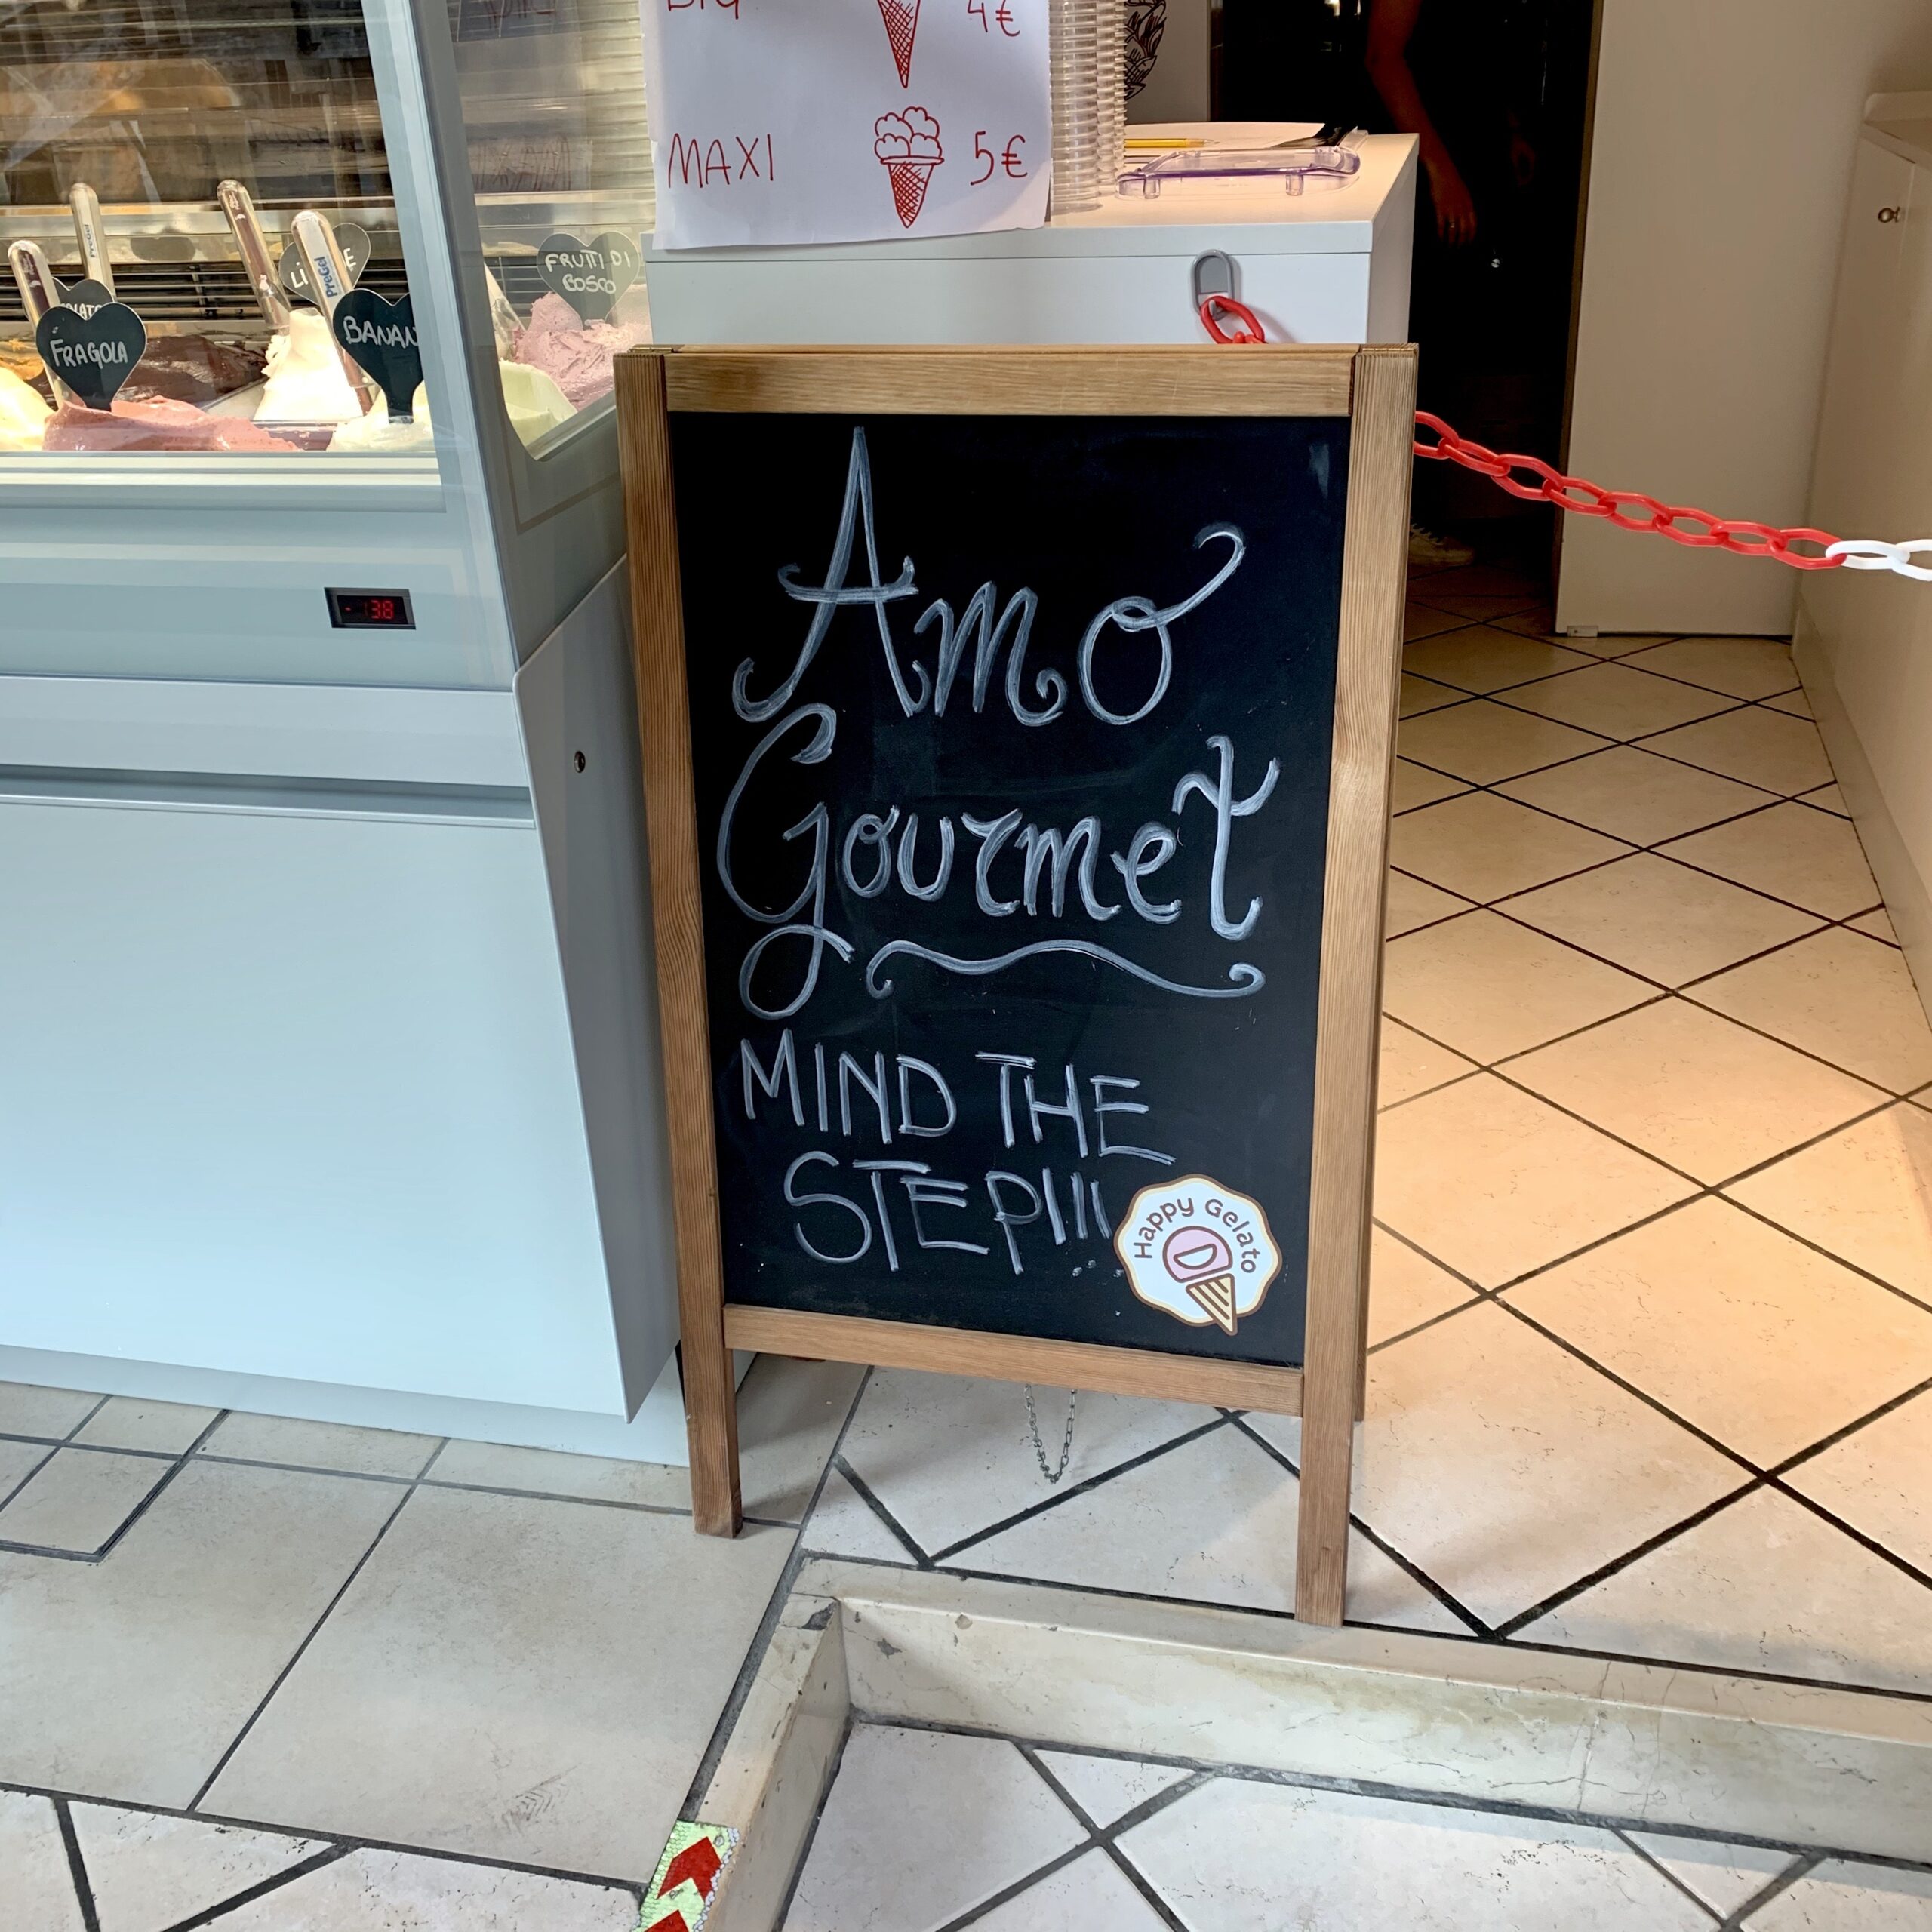 BIG 4€
MAXI 5€
PreGel
PreGel
FRUTTI DI
BOSCO
FRAGOLA
BANAN
-138
Amo
Gourmet
MIND THE
STEP!!!
Happy Gelato